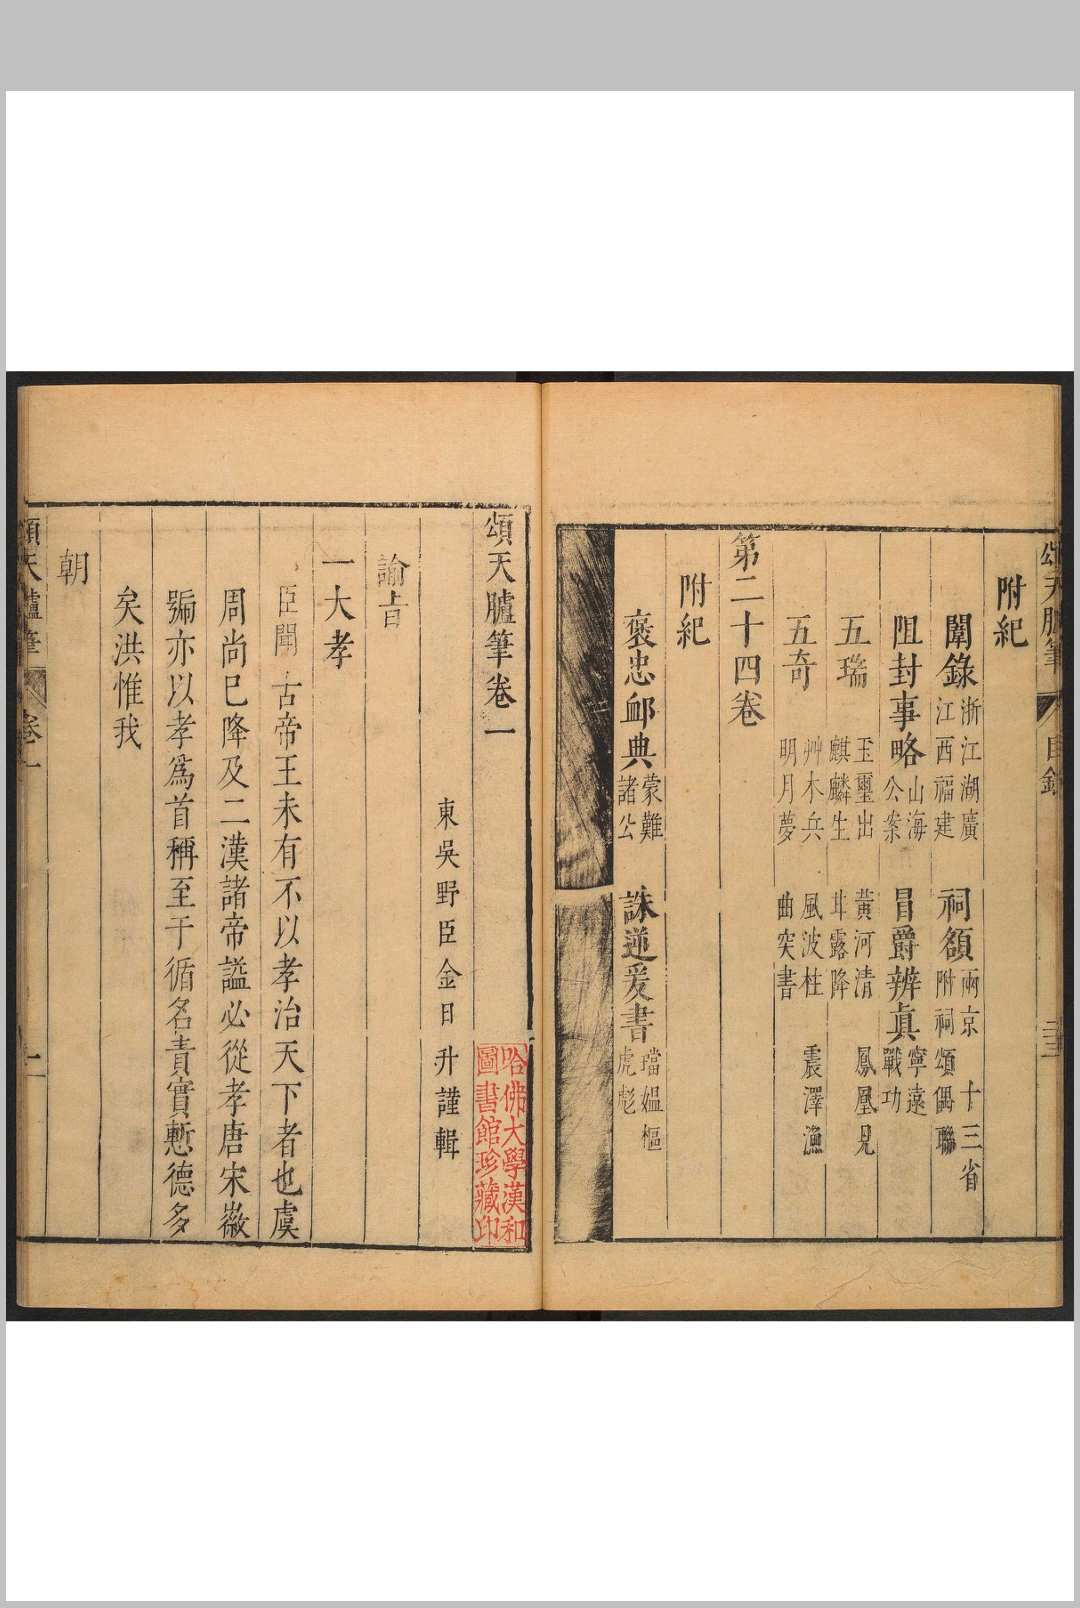 頌天臚筆
目錄
附紀
闈錄 浙江湖廣 江西福建 祠額 兩京 十三省 附祠頌偶聯
阻封事略 山海公案 冒爵辨眞 寧遠戰功
五瑞 玉璽出 麒麟生 黃河清 甘露降 鳳凰見
五奇 艸木兵 明月夢 風波柱 曲突書 震澤漁
第二十四卷
附紀
褒忠卹典 蒙難諸公 誅逆爰書 璫媼樞虎彪
頌天臚筆卷一
東吳野臣金日升謹輯
哈佛大學漢和
圖書館珍藏印
諭旨
一大孝
臣聞古帝王未有不以孝治天下者也虞
周尚已降及二漢諸帝謚必從孝唐宋徽
號亦以孝爲首稱至于循名責實慙德多
矣洪惟我
朝
頌天臚筆
卷一
一